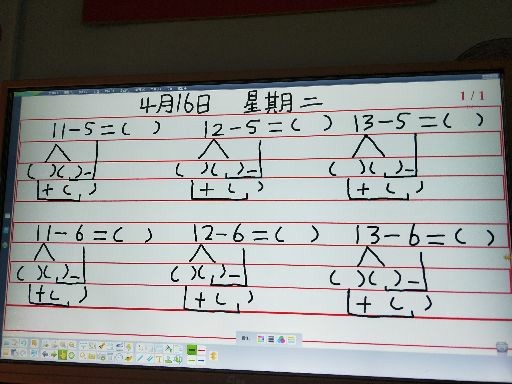 4月16日 星期二
1/1
11-5=( ) 12-5=( ) 13-5=( )
( )( ) ( )( ) ( )( )
+( ) +( ) +( )
11-6=( ) 12-6=( ) 13-6=( )
( )( ) ( )( ) ( )( )
+( ) +( ) +( )